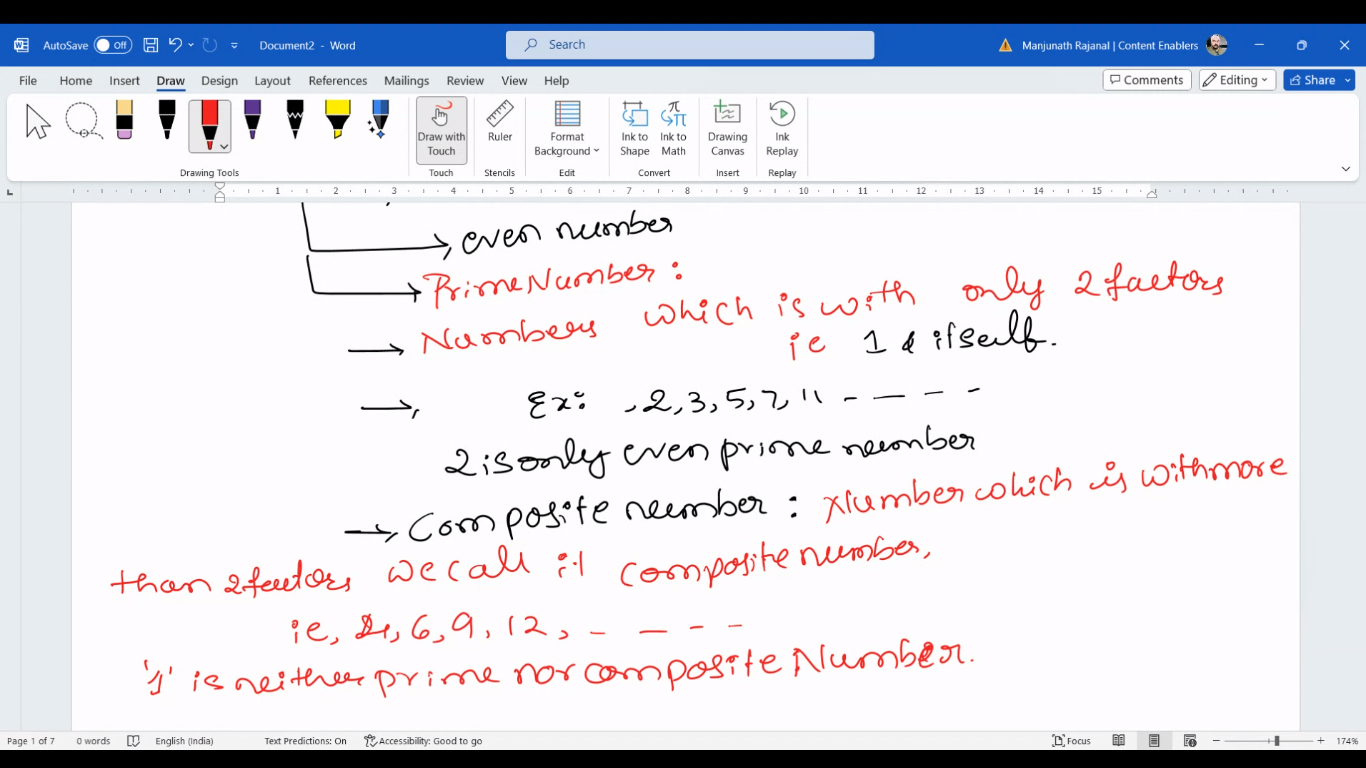 AutoSave Off Document2 - Word Search Manjunath Rajanal | Content Enablers
File Home Insert Draw Design Layout References Mailings Review View Help Comments Editing Share
Draw with Touch Ruler Format Background Ink to Shape Ink to Math Drawing Canvas Ink Replay
Drawing Tools Touch Stencils Edit Convert Insert Replay
1 2 3 4 5 6 7 8 9 10 11 12 13 14 15
even number
Prime Number :
Numbers which is with only 2 factors
ie 1 & itself.
Ex: , 2, 3, 5, 7, 11 - - - -
2 is only even prime number
Composite number : Number which is with more
than 2 factors we call it composite number,
ie, 4, 6, 9, 12, - - - -
'1' is neither prime nor composite Number.
Page 1 of 7 0 words English (India) Text Predictions: On Accessibility: Good to go Focus 174%